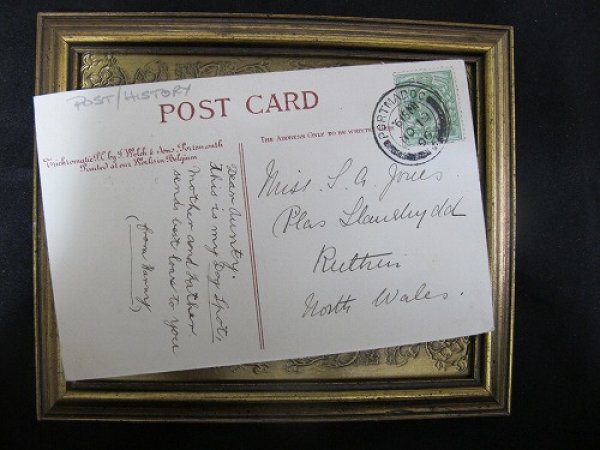 POST/HISTORY
POST CARD
Trichromatic P.C. by J. Welch & Sons, Portsmouth
Printed at our Works in Belgium
THE ADDRESS ONLY TO BE WRITTEN
PORTMADOC
Dear Aunty.
This is my Dog Spots
Mother and Father
send best love to you
from
Miss. S. A. Jones.
Plas Llanrhydd
Ruthin
North Wales.